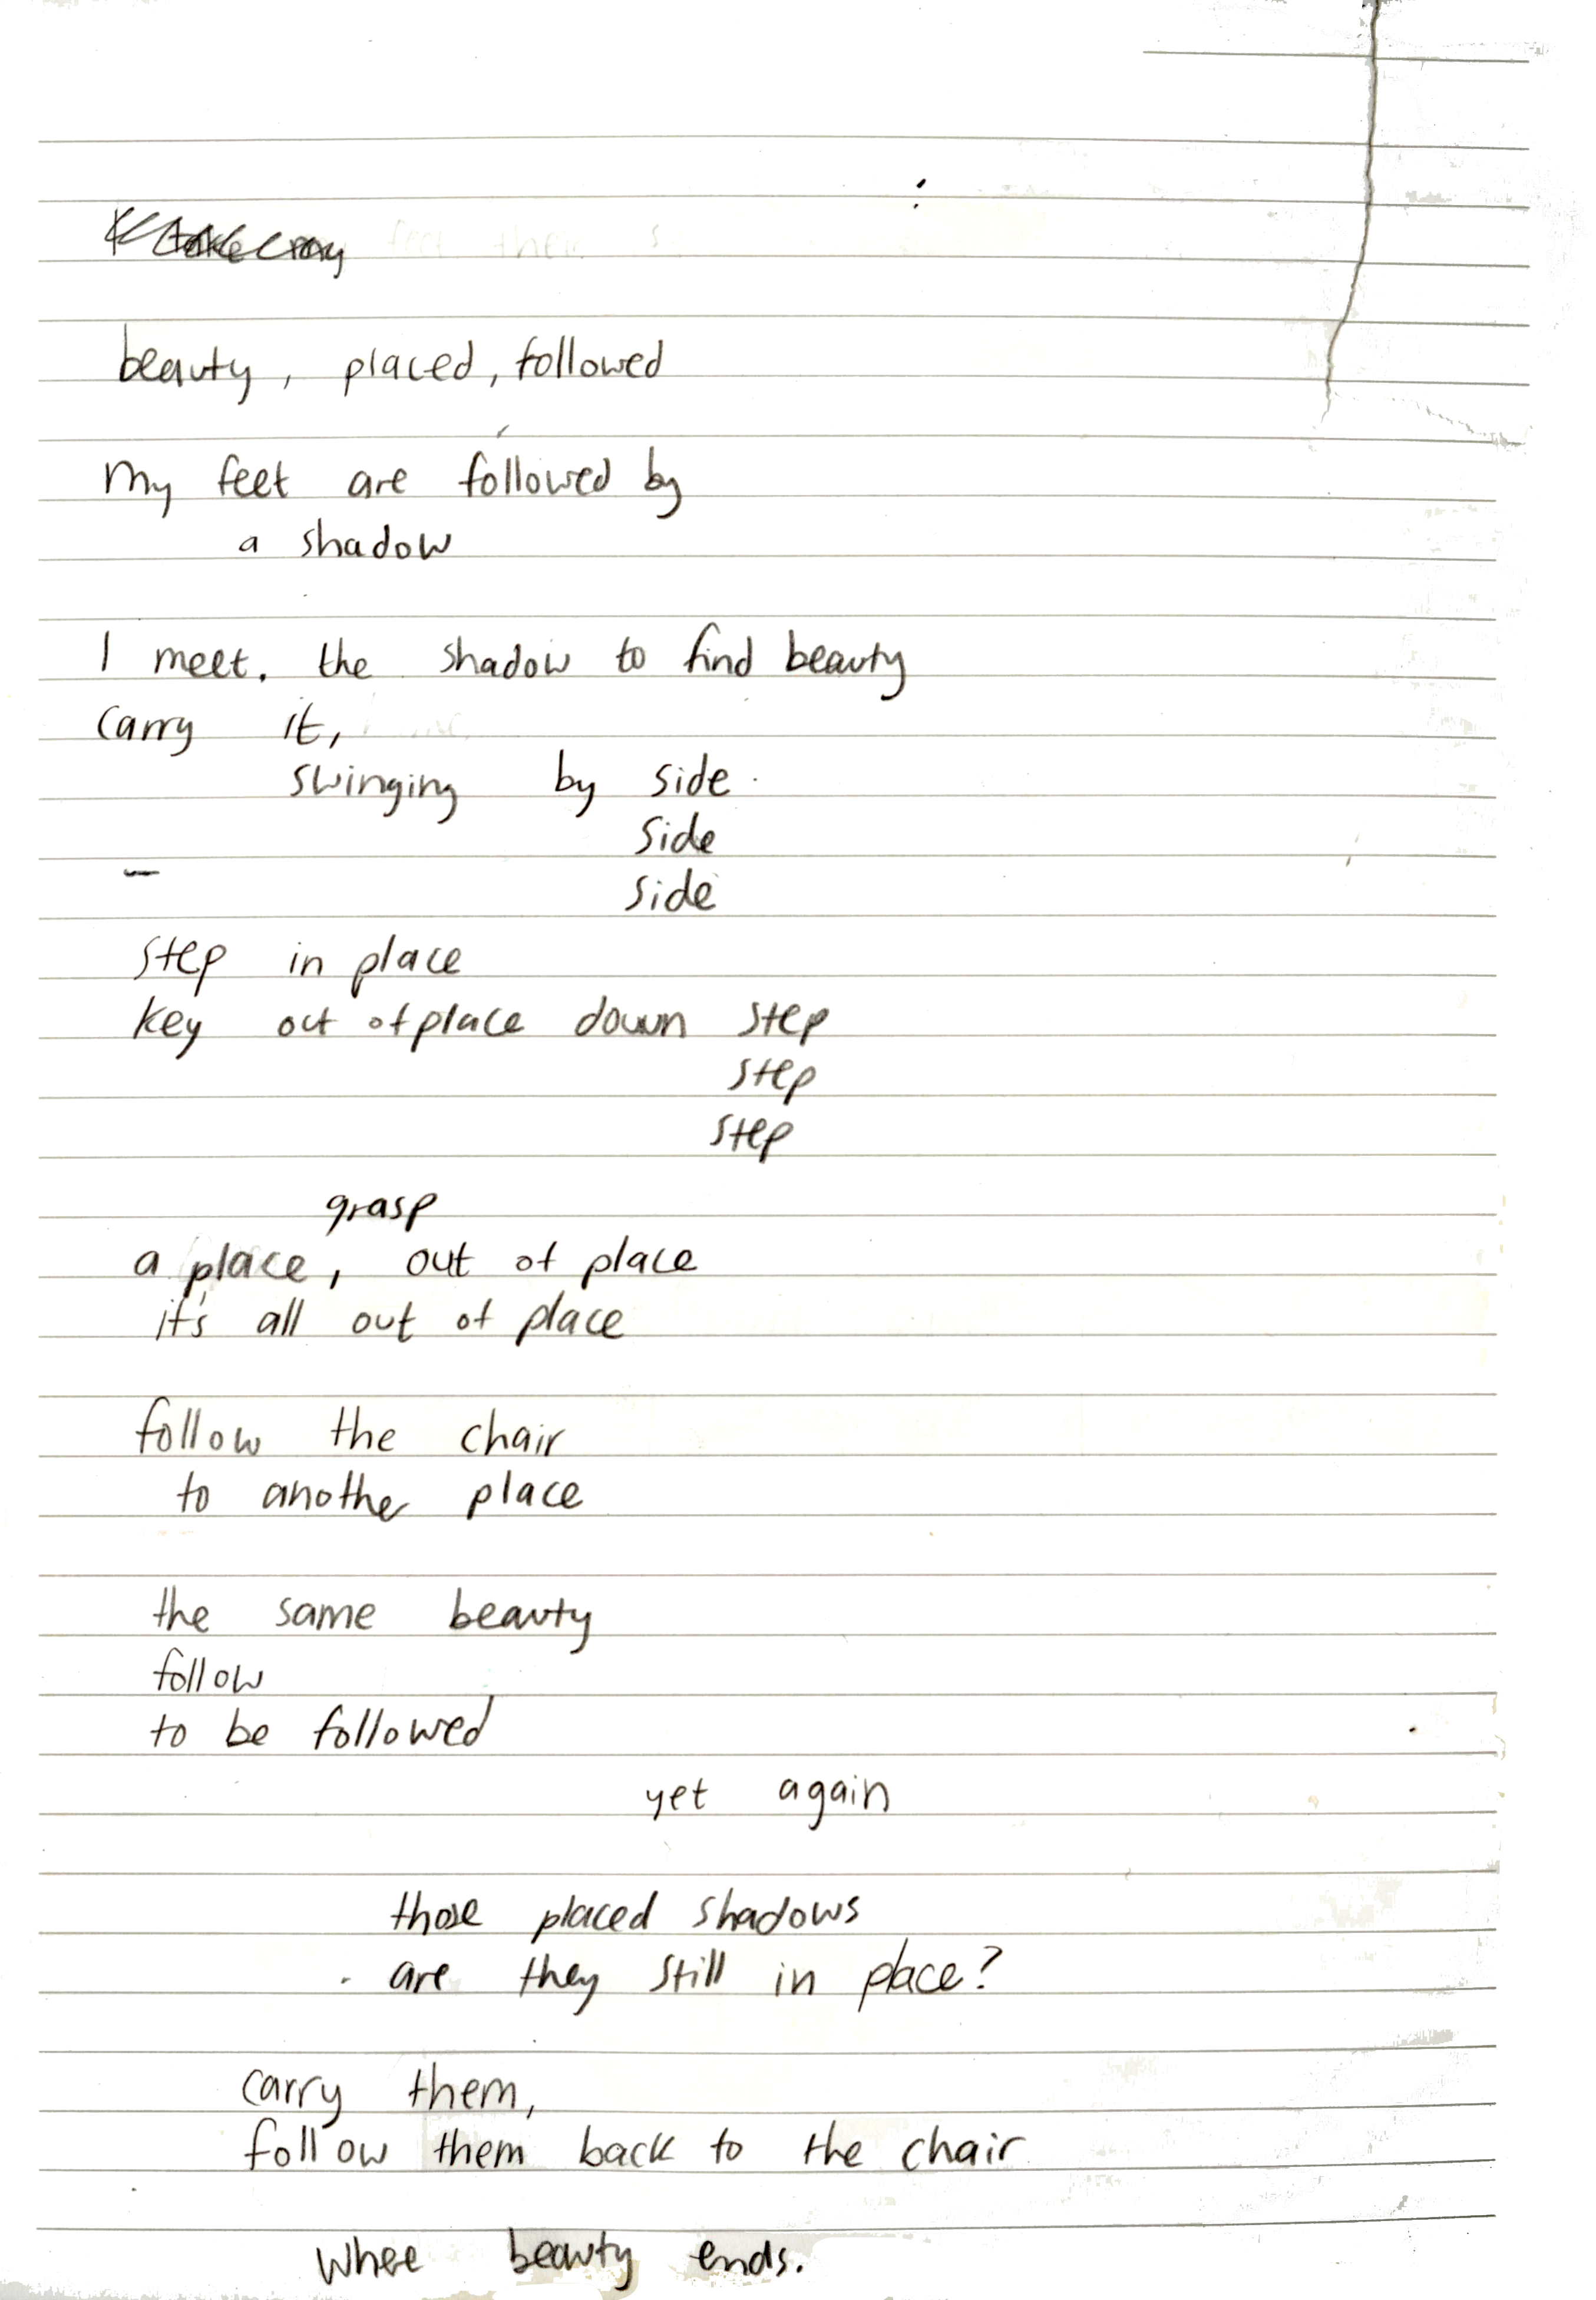 beauty, placed, followed
My feet are followed by
a shadow
I meet. the shadow to find beauty
carry it,
swinging by side.
side
side
step in place
key out of place down step
step
step
grasp
a place, out of place
it's all out of place
follow the chair
to another place
the same beauty
follow
to be followed
yet again
those placed shadows
are they still in place?
carry them,
follow them back to the chair
Where beauty ends.